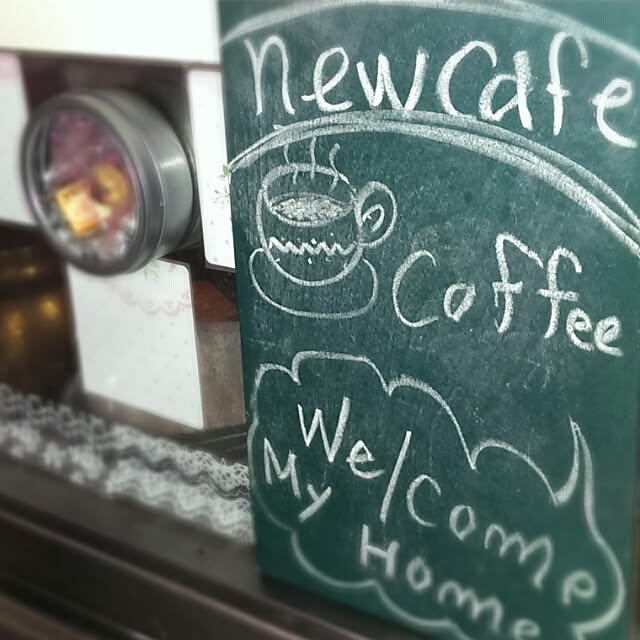 newcafe
Coffee
Welcome
My Home